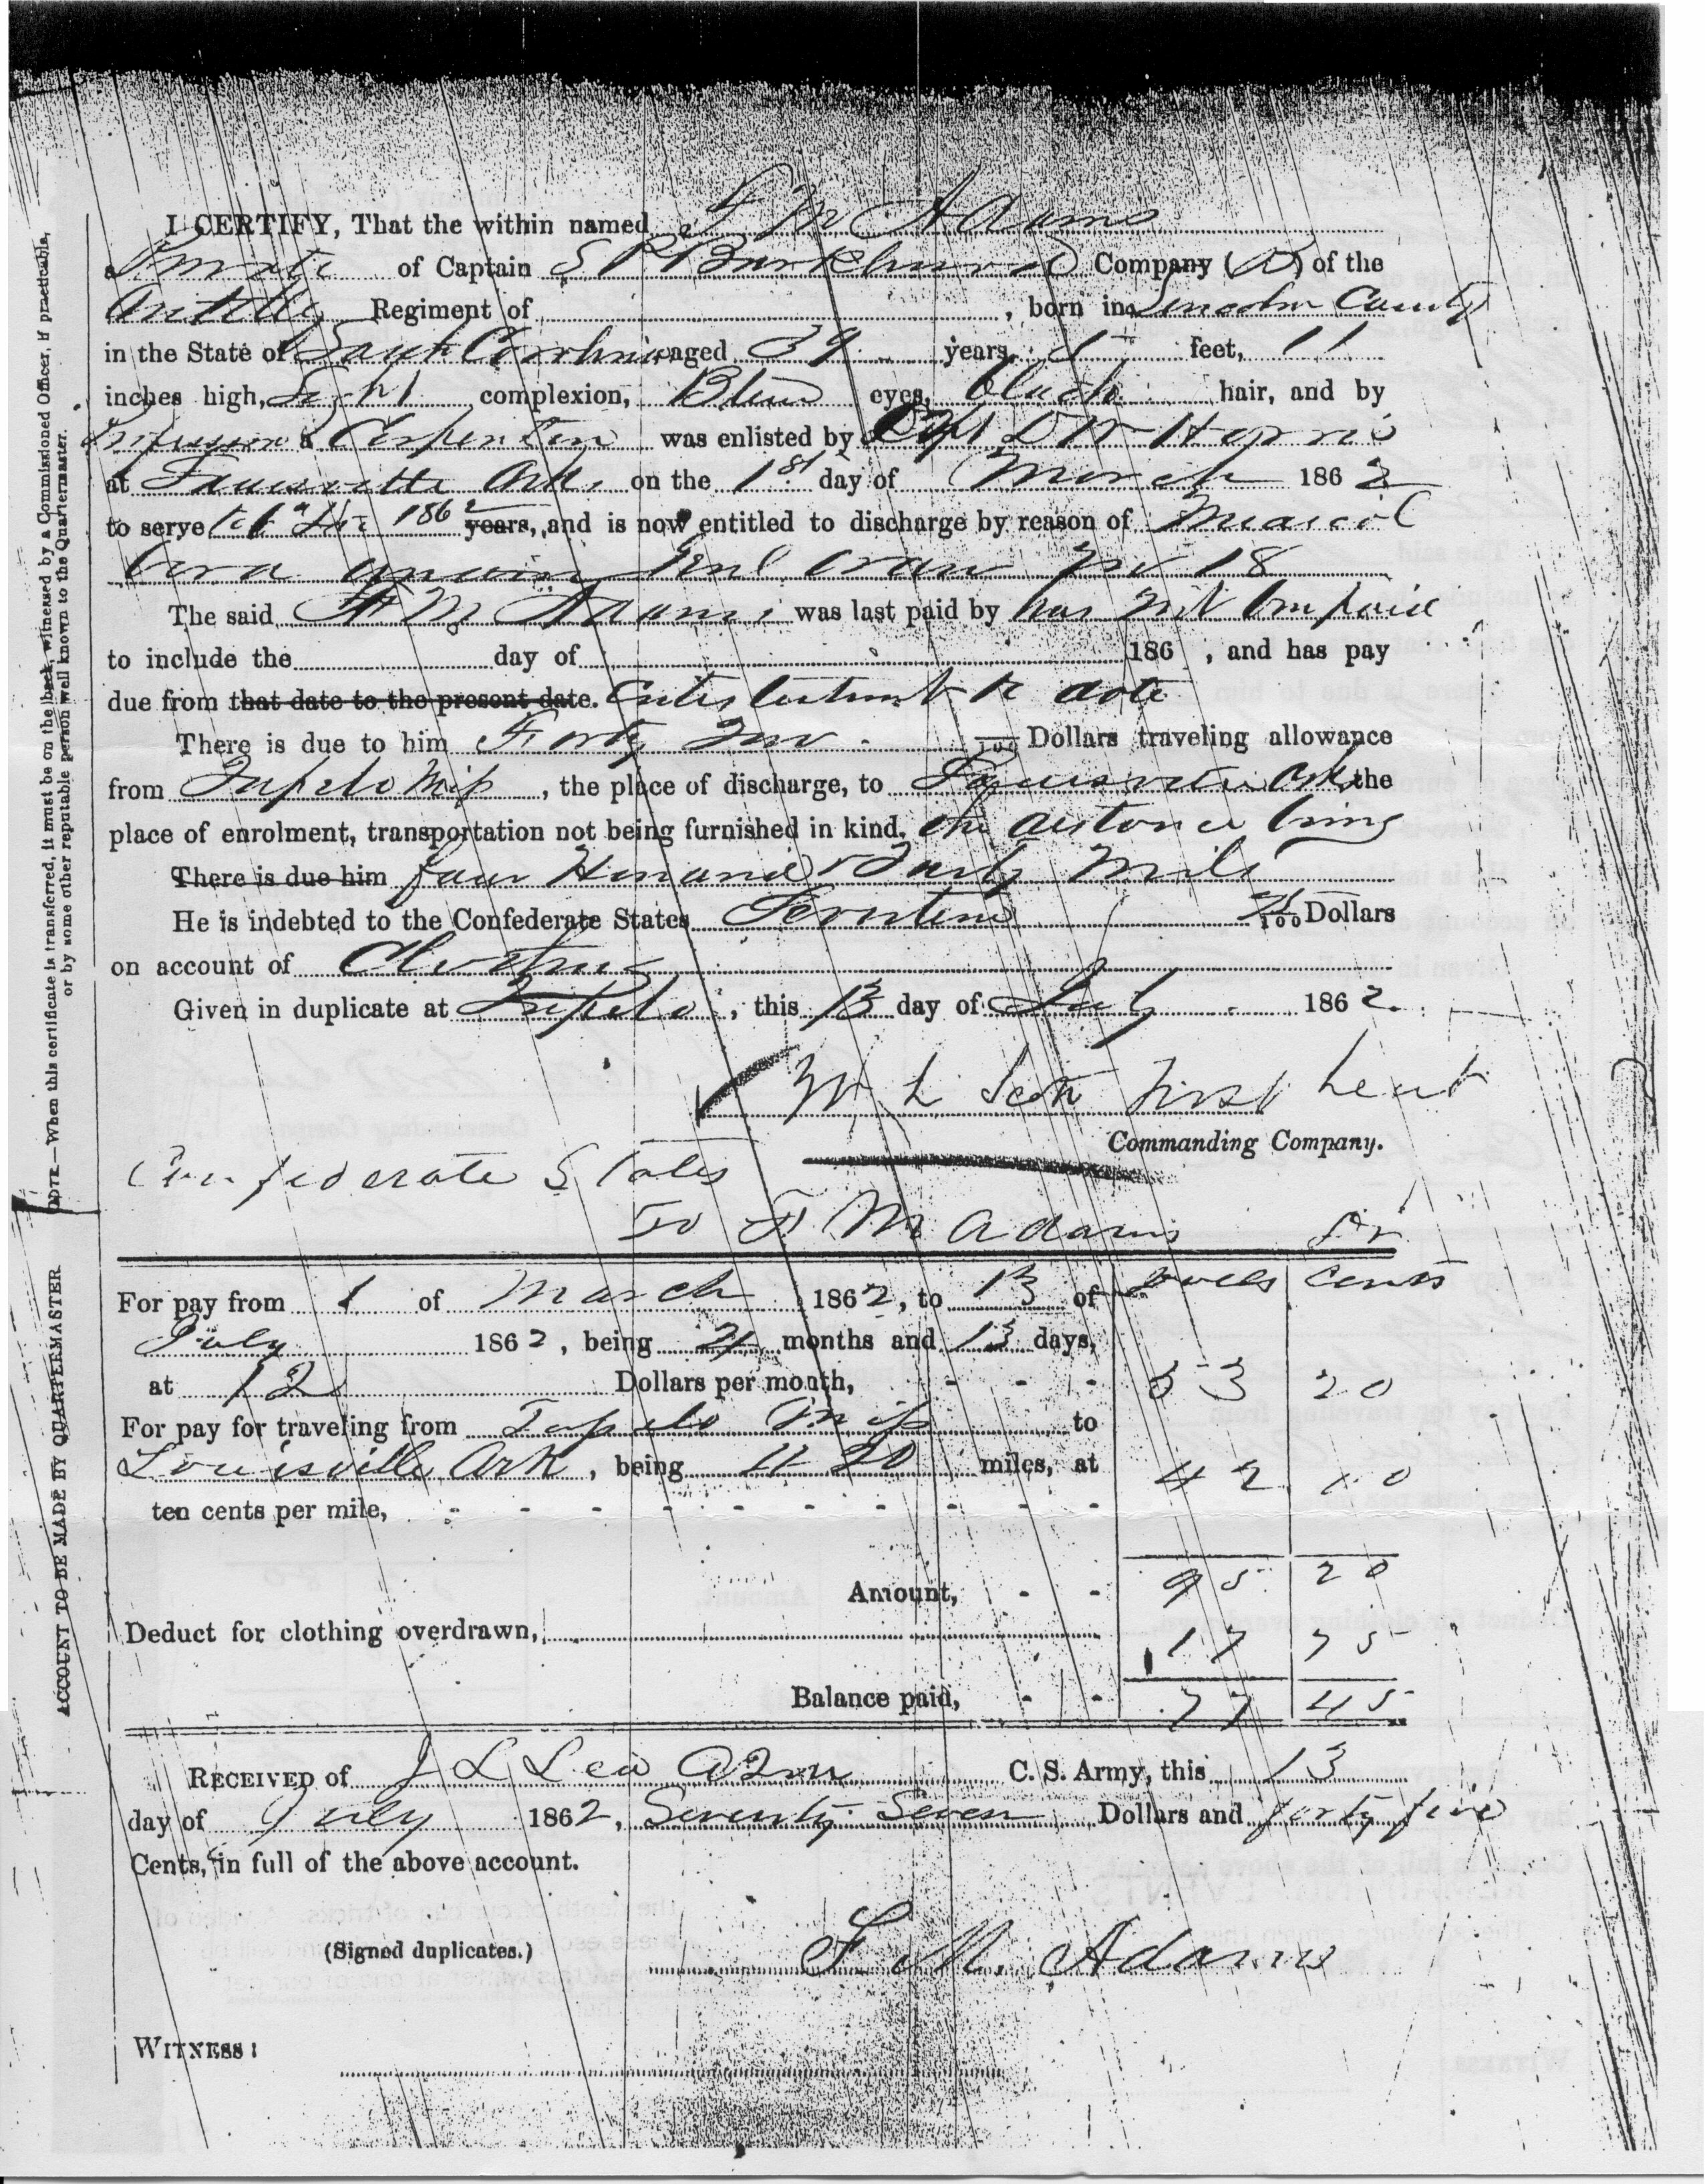 I CERTIFY, That the within named F M Adams
a Private of Captain S P Burkhurd Company (A) of the
Artillery Regiment of , born in Lincoln County
in the State of North Carolina aged 39 years 5 feet, 11
inches high, Light complexion, Blue eyes, Black hair, and by
a Carpenter was enlisted by Capt D W Harris
at Ark. on the 1st day of March 1862
to serve 1862 years, and is now entitled to discharge by reason of
18
The said F M Adams was last paid by has not been paid
to include the day of 186 , and has pay
due from that date to the present date. Enlistment to date
There is due to him Forty Two /100 Dollars traveling allowance
from Tupelo Miss , the place of discharge, to Ark the
place of enrolment, transportation not being furnished in kind, the distance being
There is due him four Hundred & Twenty Miles
He is indebted to the Confederate States Seventeen 75/100 Dollars
on account of Clothing
Given in duplicate at Tupelo , this 13 day of July 1862.
W L Scott First Leut
Commanding Company.
Confederate States
To F M Adams Dr
Dolls Cents
For pay from 1 of March 1862, to 13 of
July 1862, being 4 months and 13 days,
at 12 Dollars per month, - - - 53 20
For pay for traveling from Tupelo Miss to
Louisville Ark , being 420 miles, at 42 00
ten cents per mile, - - - - - - - - - -
Amount, - - 95 20
Deduct for clothing overdrawn, 17 75
Balance paid, - - 77 45
RECEIVED of J L Lew AQM C. S. Army, this 13
day of July 1862, Seventy Seven Dollars and forty five
Cents, in full of the above account.
(Signed duplicates.) F M. Adams
WITNESS:
NOTE.—When this certificate is transferred, it must be on the back, witnessed by a Commissioned Officer, if practicable,
or by some other reputable person well known to the Quartermaster.
ACCOUNT TO BE MADE BY QUARTERMASTER